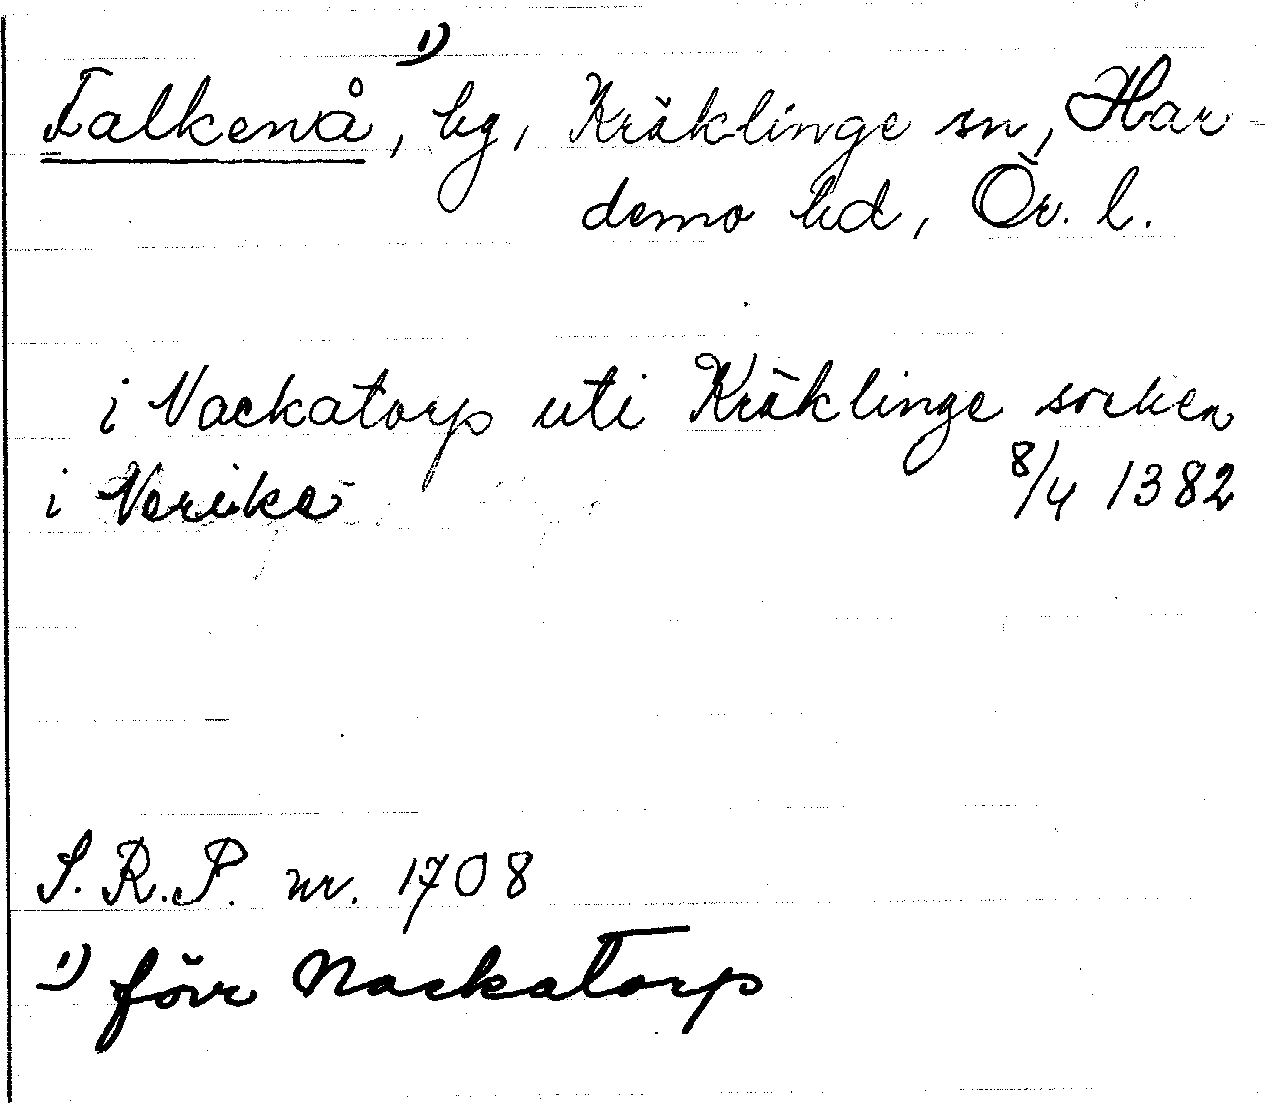 Falkenå¹⁾, by, Kräklinge sn, Har-
demo hd, Ör. l.
i Nackatorp uti Kräklinge socken
i Nerike 8/4 1382
S.R.P. nr. 1708
¹⁾ förr Nackatorp